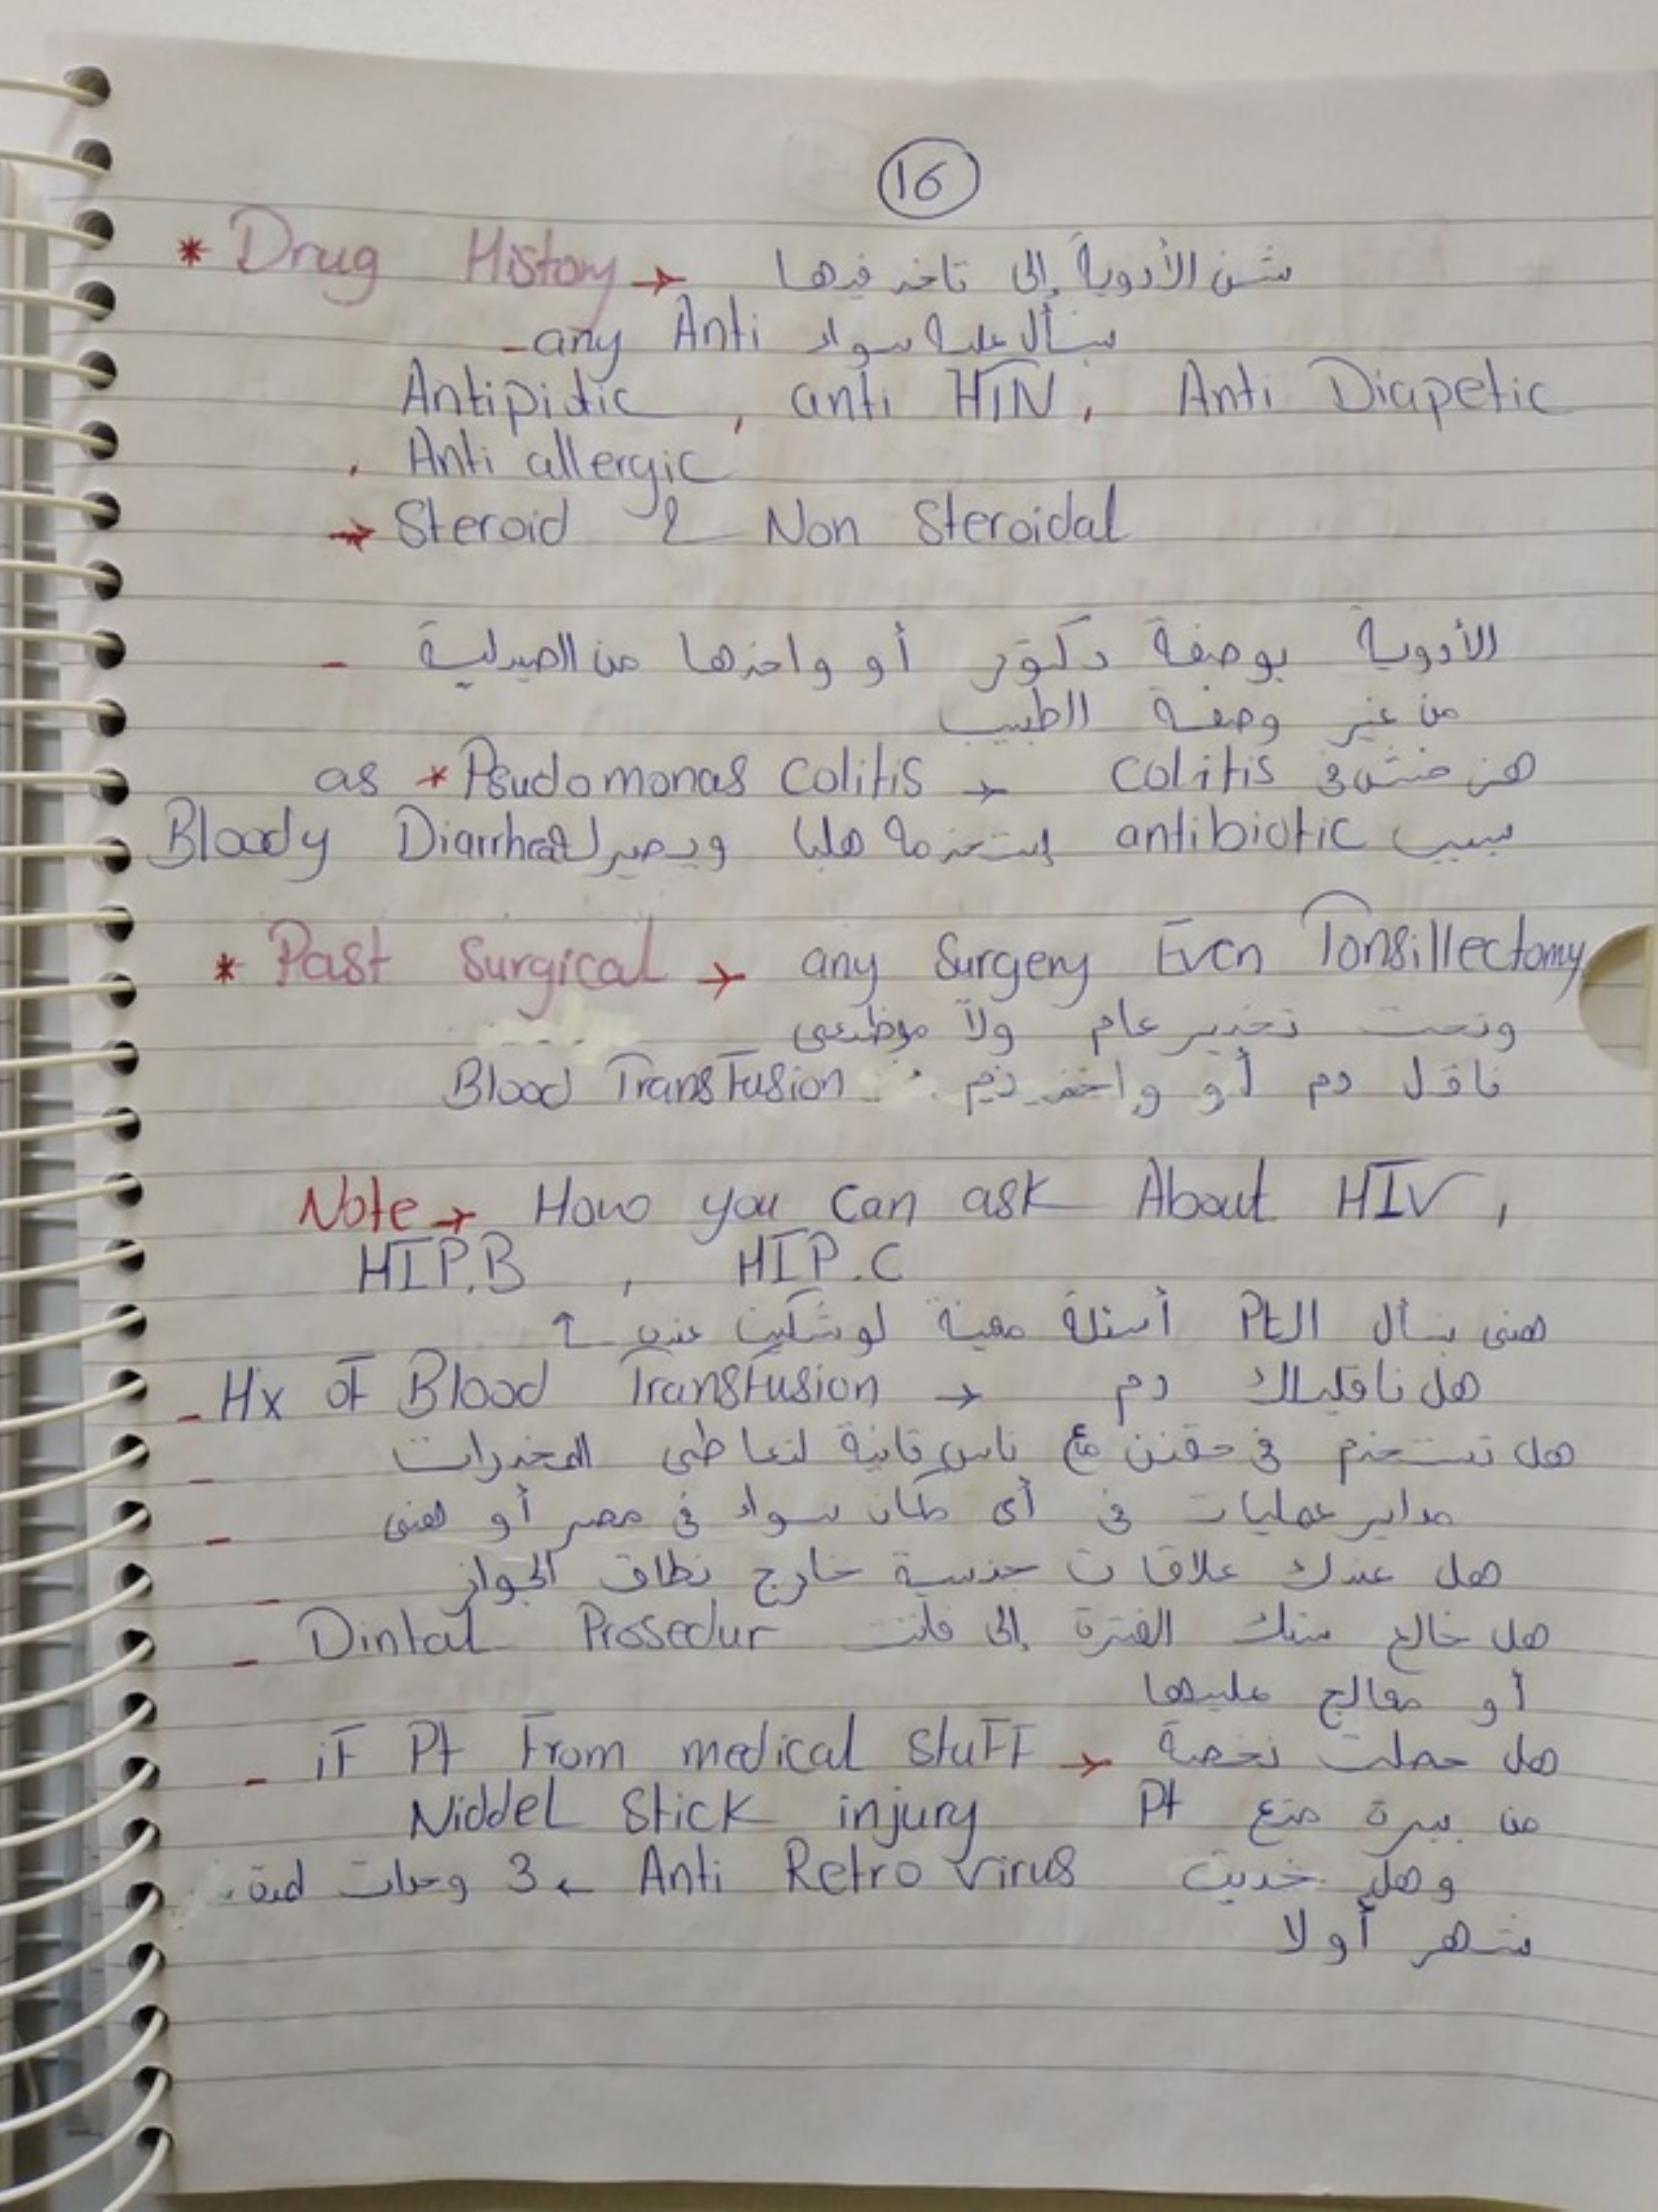 16
* Drug History → شن الأدوية إلى تاخد فيها
- any Anti نسأل عليه سواء
Antipiotic , anti HTN , Anti Diapetic
, Anti allergic
→ Steroid & Non Steroidal
- الأدوية بوصفة دكتور أو واخذها من الصيدلية
من غير وصفة الطبيب
as * Psudomonas Colitis → Colitis هنى خش في
بسبب antibiotic إستخدمه هلبا ويصير له Bloody Diarrhea
* Past Surgical → any Surgery Even Tonsillectomy
وتحت تخدير عام ولا موضعى
ناقل دم أو واخد دم Blood Transfusion
Note → How you Can ask About HIV ,
HIP.B , HIP.C
هنى نسأل الPt أسئلة معينة لو شكيت عنده ↑
- Hx of Blood Transfusion → هل ناقليلك دم
- هل تستخدم في حقنن مع ناس ثانية لتعاطى المخدرات
- مداير عمليات في أى مكان سواء في مصر أو هنى
- هل عندك علاقات جنسية خارج نطاق الجواز
- هل خالع سنك الفترة إلى فاتت Dintal Prosedur
أو معالج عليها
- if Pt From medical Stuff → هل حصلت نخصة
من ببرة متع Pt Niddel Stick injury
وهل خديت Anti Retro Virus ← 3 وحدات لمدة
شهر أولا